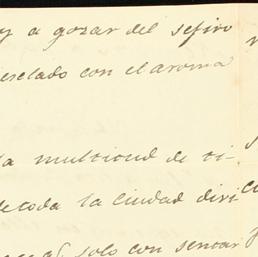 y a gozar del sefiro
esclado con el aroma
la multitud de ti-
de toda la ciudad divi
solo con sentar